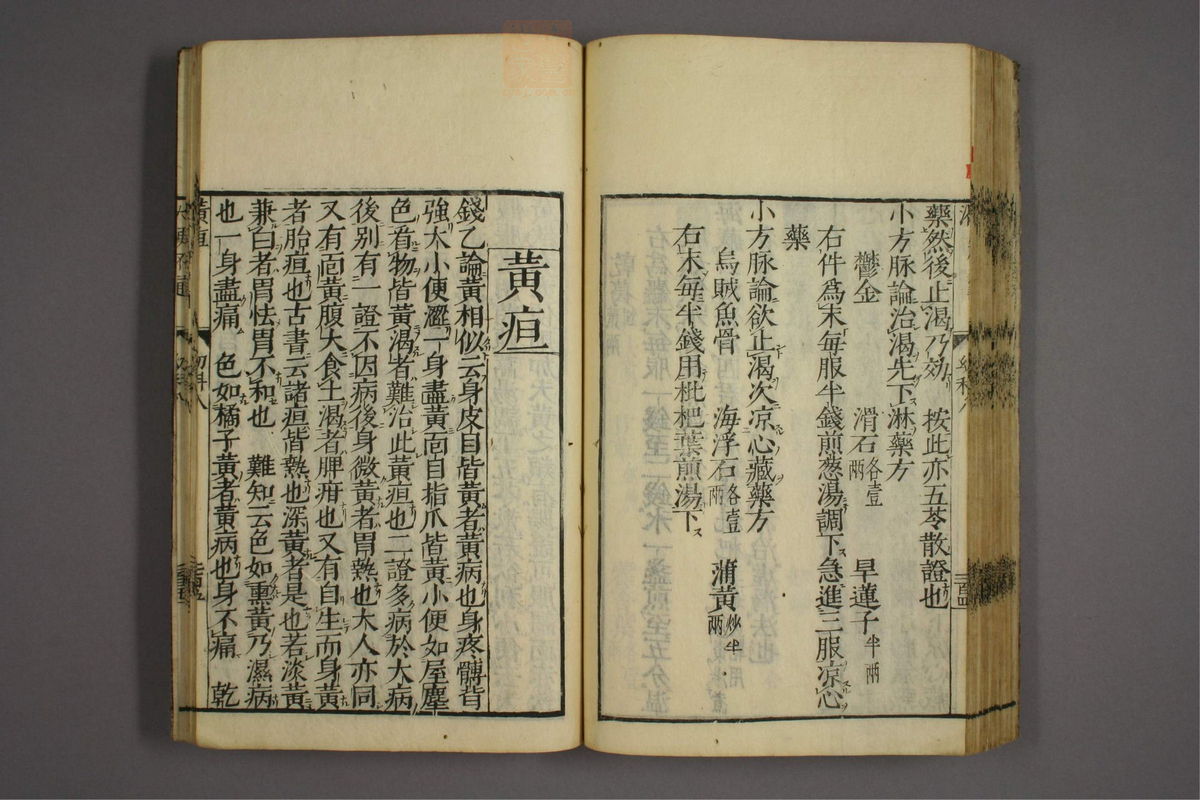 藥然後止渴乃効　按此亦五苓散證也
小方脉論治渴先下淋藥方
鬱金　滑石各壹兩　旱蓮子半兩
右件為末每服半錢煎葱湯調下急進三服凉心
藥
小方脉論欲止渴次凉心藏藥方
烏賊魚骨　海浮石各壹兩　蒲黃炒半兩
右末每半錢用枇杷葉煎湯下
黃疸
錢乙論黃相似云身皮目皆黃者黃病也身疼髆背
強大小便澀一身盡黃面目指爪皆黃小便如屋塵
色看物皆黃渴者難治此黃疸也二證多病於大病
後別有一證不因病後身微黃者胃熱也大人亦同
又有面黃腹大食土渴者脾疳也又有自生而身黃
者胎疸也古書云諸疸皆熱也深黃者是也若淡黃
兼白者胃怯胃不和也　難知云色如熏黃乃濕病
也一身盡痛　色如橘子黃者黃病也身不痛　乾
黃疸
幼科八